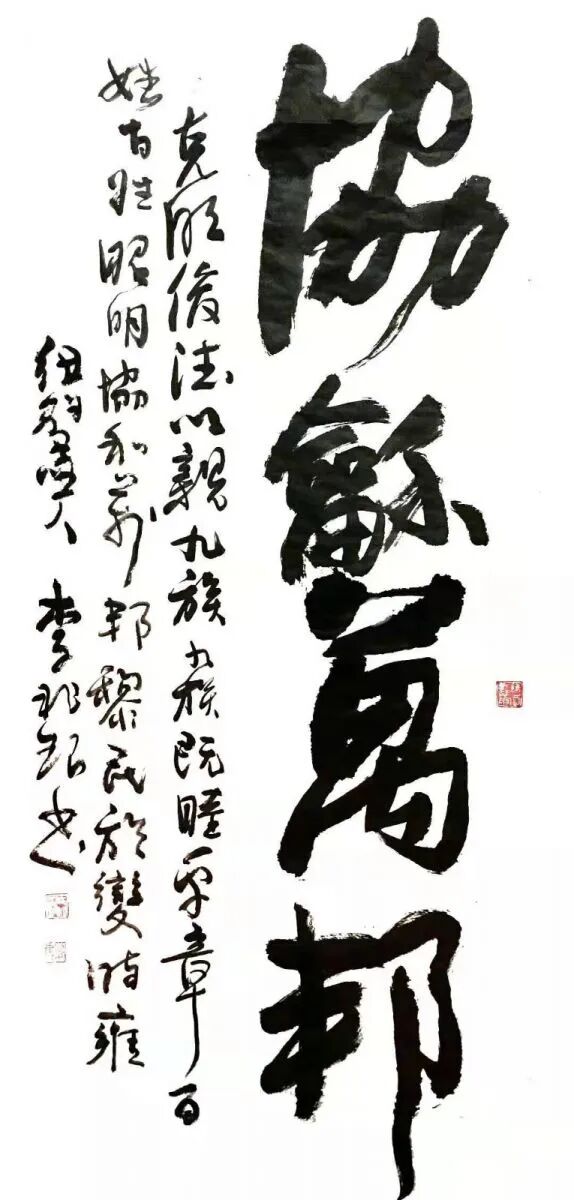 協龢萬邦
克明俊德以親九族九族既睦平章百
姓百姓昭明協和萬邦黎民於變時雍
人 李邦 書